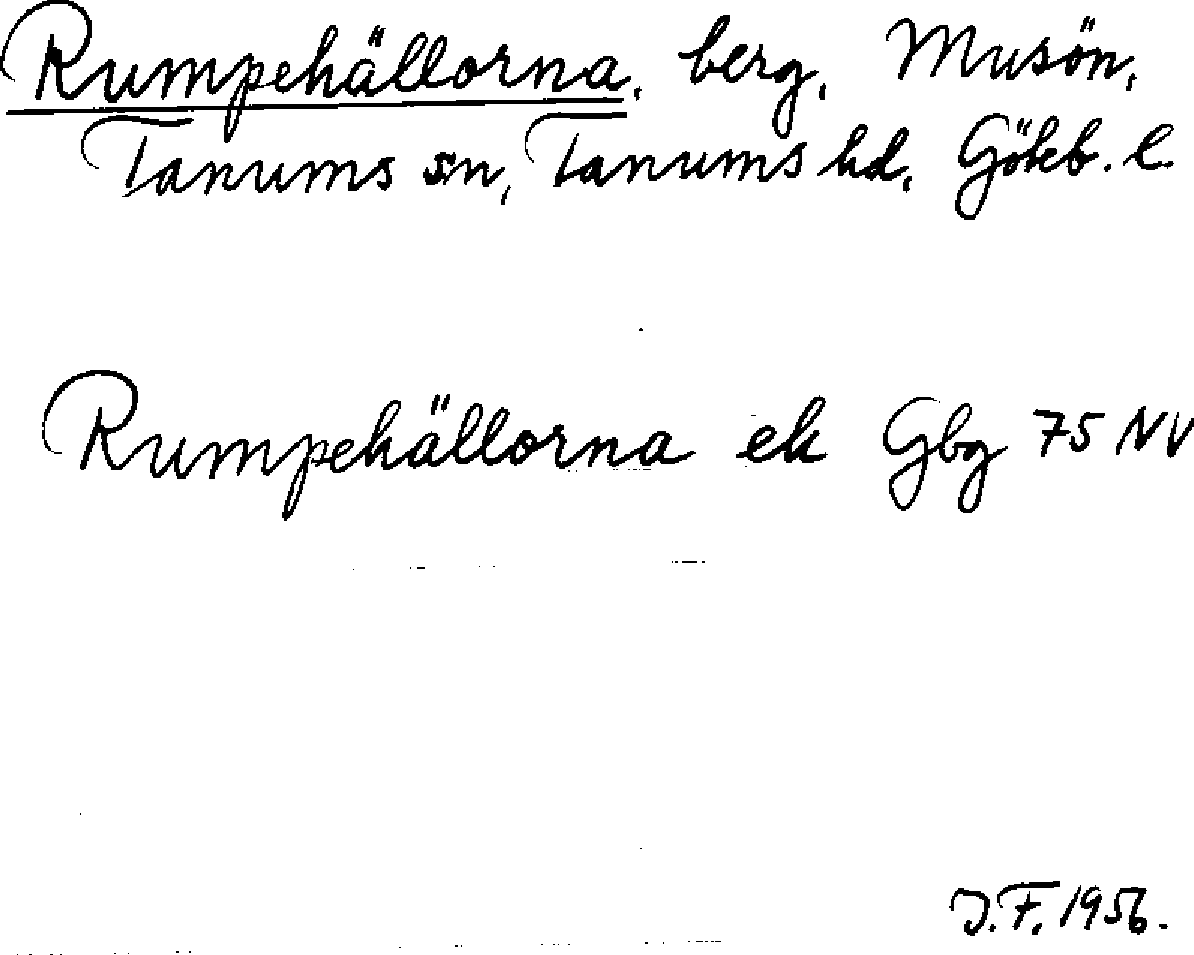 Rumpehällorna, berg, Musön,
Tanums sn, Tanums hd, Gökb. l.
Rumpehällorna ek Gbg 75 NV
J.F. 1956.